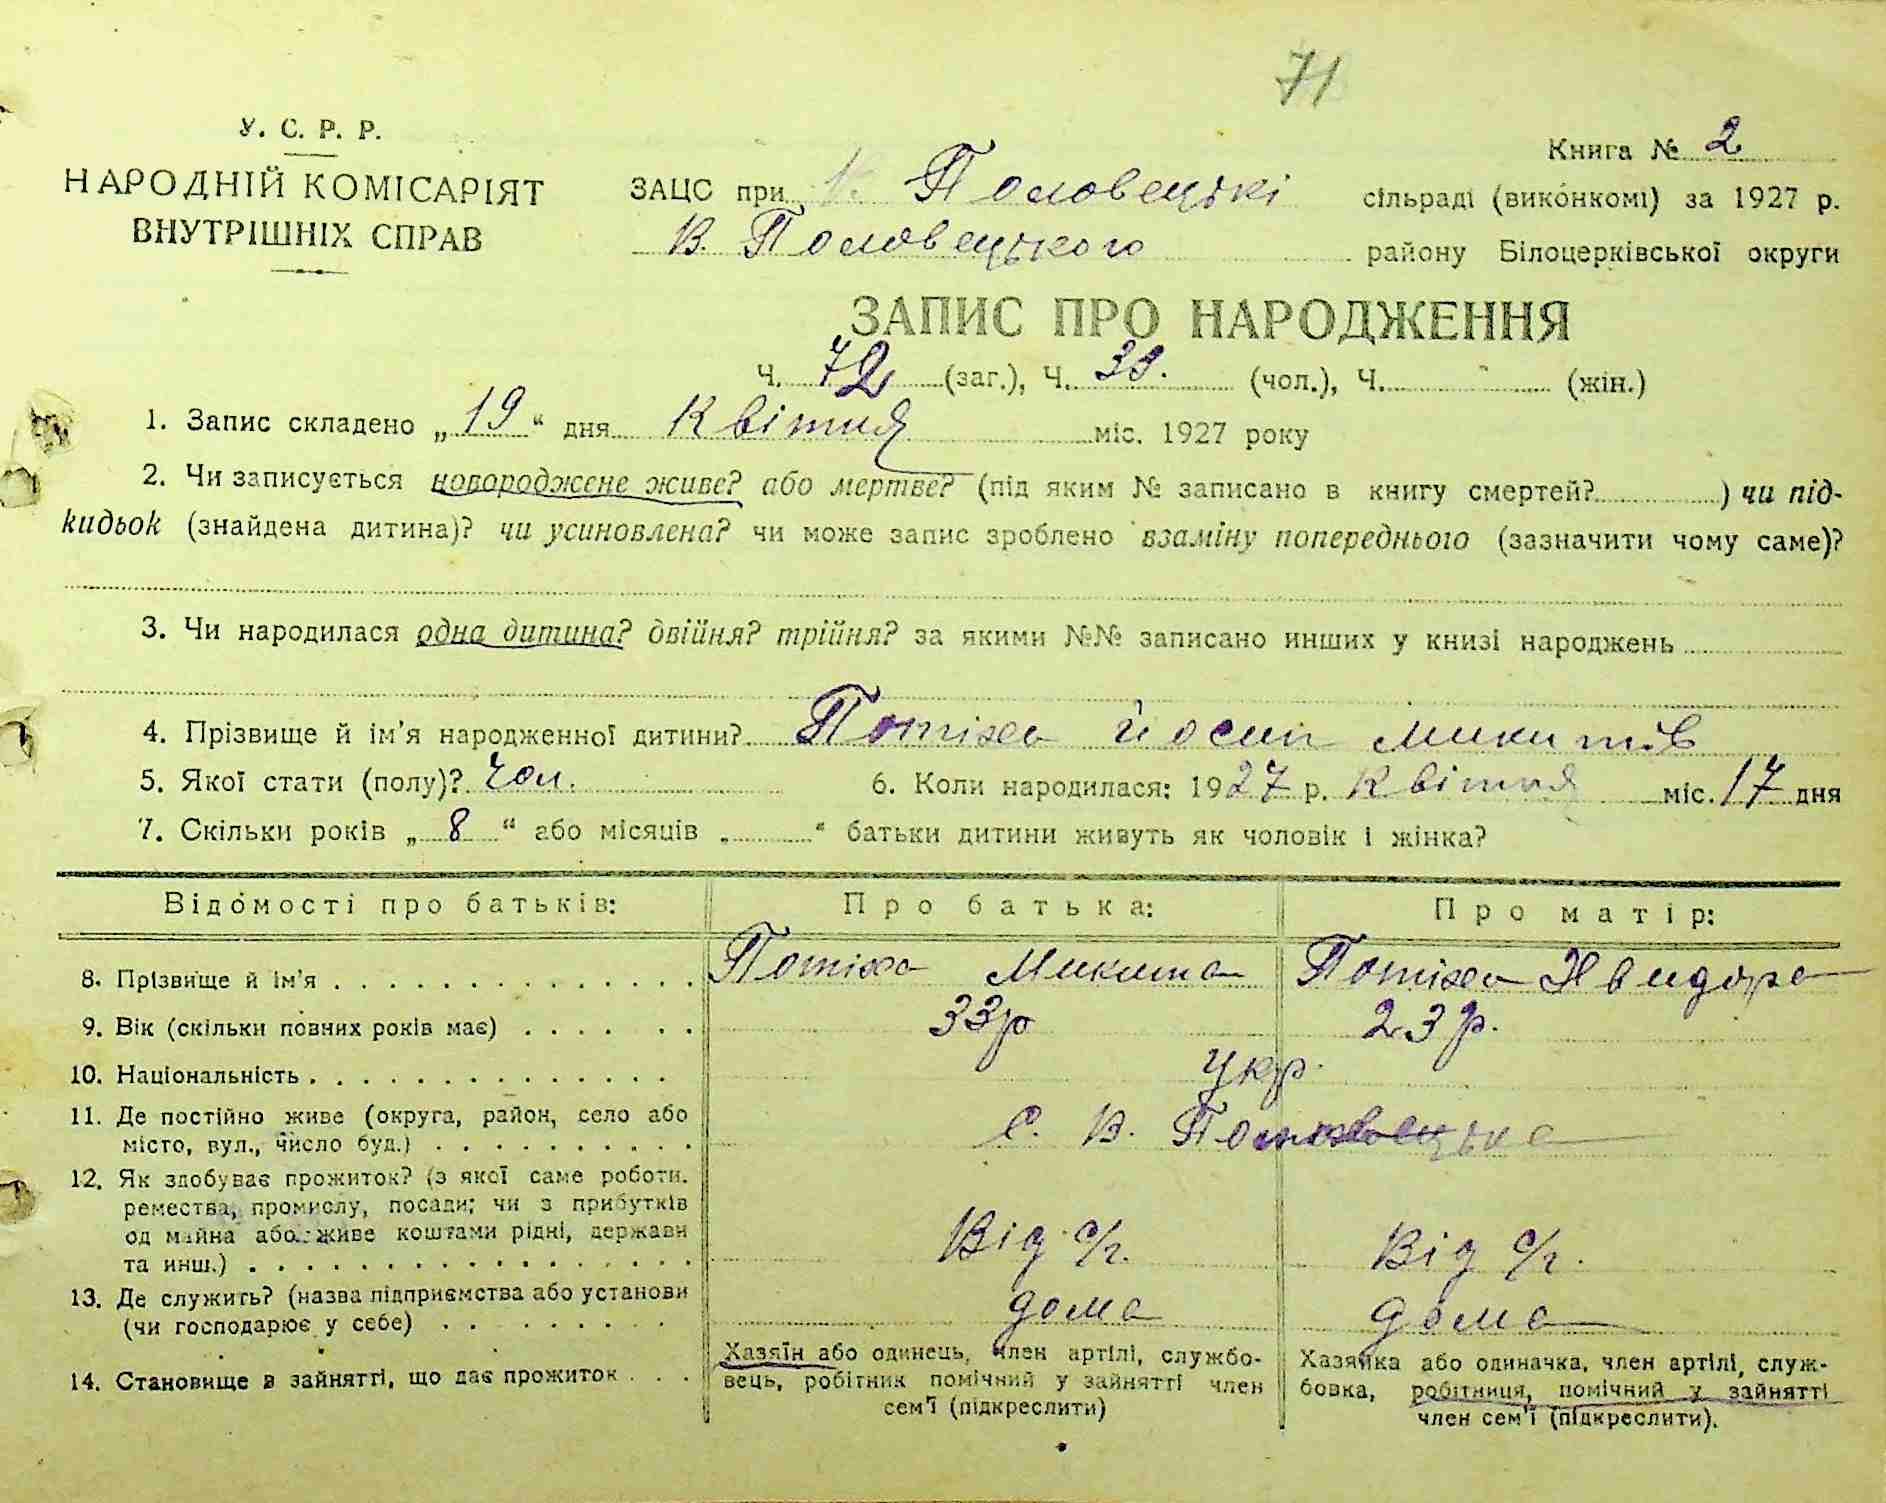 71
У. С. Р. Р.
НАРОДНІЙ КОМІСАРІЯТ
ВНУТРІШНІХ СПРАВ
Книга № 2
ЗАЦС при Половецькі сільраді (виконкомі) за 1927 р.
В. Половецького району Білоцерківської округи
ЗАПИС ПРО НАРОДЖЕННЯ
Ч. 72 (заг.), Ч. 39. (чол.), Ч. (жін.)
1. Запис складено „19“ дня Квітня міс. 1927 року
2. Чи записується новороджене живе? або мертве? (під яким № записано в книгу смертей? ) чи під-
кидьок (знайдена дитина)? чи усиновлена? чи може запис зроблено взаміну попереднього (зазначити чому саме)?
3. Чи народилася одна дитина? двійня? трійня? за якими №№ записано инших у книзі народжень
4. Прізвище й ім'я народженної дитини? Потіха Йосип Микитів
5. Якої стати (полу)? Чол. 6. Коли народилася: 1927 р. Квітня міс. 17 дня
7. Скільки років „ 8 “ або місяців „ “ батьки дитини живуть як чоловік і жінка?
Відомості про батьків: Про батька: Про матір:
8. Прізвище й ім'я Потіха Микита Потіха Явидоха
9. Вік (скільки повних років має) 33р 23р.
10. Національність укр.
11. Де постійно живе (округа, район, село або
місто, вул., число буд.) с. В. Половецьке
12. Як здобуває прожиток? (з якої саме роботи.
ремества, промислу, посади; чи з прибутків
од майна або живе коштами рідні, держави
та инш.) Від с/г. Від с/г.
13. Де служить? (назва підприємства або установи
(чи господарює у себе) дома дома
14. Становище в зайнятті, що дає прожиток
Хазяїн або одинець, член артілі, службо-
вець, робітник помічний у зайнятті член
сем'ї (підкреслити)
Хазяйка або одиначка, член артілі, служ-
бовка, робітниця, помічний у зайнятті
член сем'ї (підкреслити).